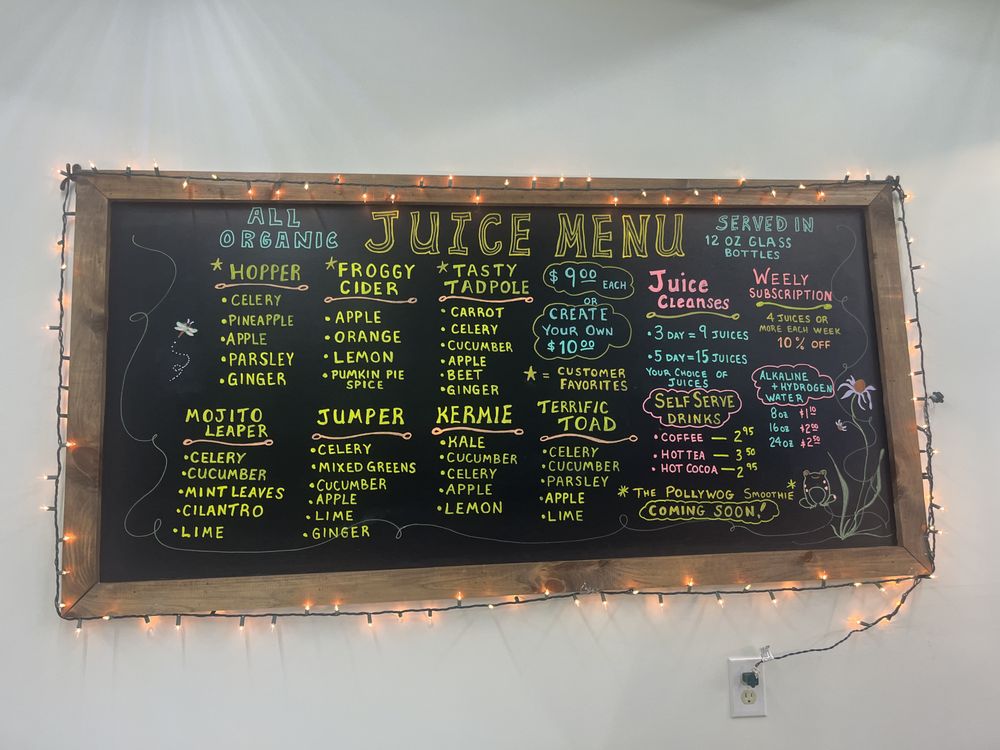 ALL
ORGANIC
JUICE MENU
SERVED IN
12 OZ GLASS
BOTTLES
* HOPPER
• CELERY
• PINEAPPLE
• APPLE
• PARSLEY
• GINGER
* FROGGY
CIDER
• APPLE
• ORANGE
• LEMON
• PUMKIN PIE
SPICE
* TASTY
TADPOLE
• CARROT
• CELERY
• CUCUMBER
• APPLE
• BEET
• GINGER
$ 9.00 EACH
OR
CREATE
YOUR OWN
$ 10.00
* = CUSTOMER
FAVORITES
MOJITO
LEAPER
• CELERY
• CUCUMBER
• MINT LEAVES
• CILANTRO
• LIME
JUMPER
• CELERY
• MIXED GREENS
• CUCUMBER
• APPLE
• LIME
• GINGER
KERMIE
• KALE
• CUCUMBER
• CELERY
• APPLE
• LEMON
TERRIFIC
TOAD
• CELERY
• CUCUMBER
• PARSLEY
• APPLE
• LIME
Juice
Cleanses
• 3 DAY = 9 JUICES
• 5 DAY = 15 JUICES
YOUR CHOICE OF
JUICES
SELF SERVE
DRINKS
• COFFEE — 2.95
• HOT TEA — 3.50
• HOT COCOA — 2.95
WEELY
SUBSCRIPTION
4 JUICES OR
MORE EACH WEEK
10% OFF
ALKALINE
+ HYDROGEN
WATER
8oz $1.10
16oz $2.00
24oz $2.50
* THE POLLYWOG SMOOTHIE *
COMING SOON!